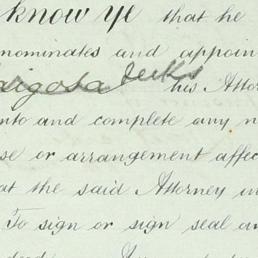 know Ye that he
nominates and appoin
his Attor
nto and complete any n
se or arrangement affec
at the said Attorney in
To sign or sign seal an